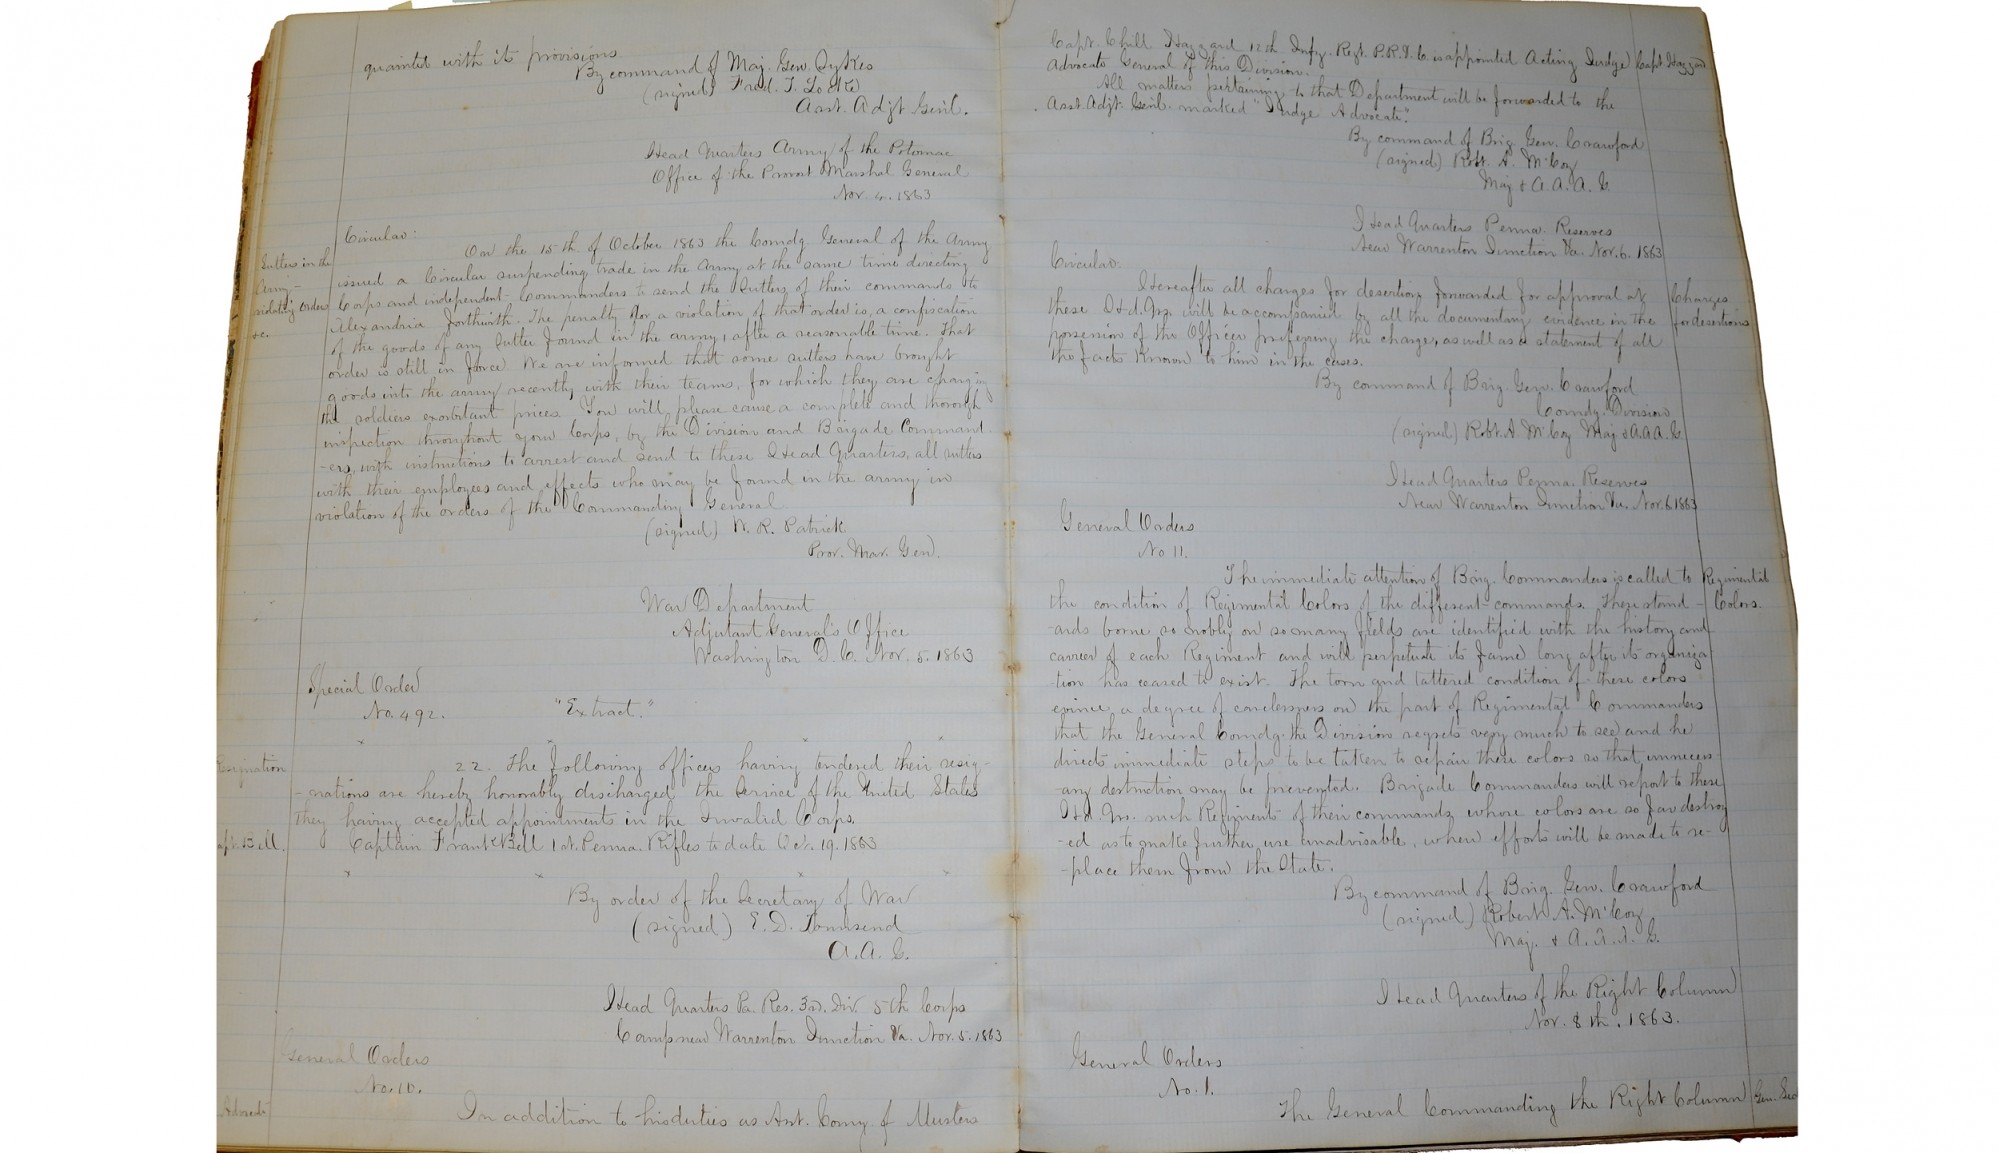 quainted with its provisions
By command of Maj. Gen. Sykes
(signed) Fred. T. Locke
Asst. Adjt. Genl.
Head Quarters Army of the Potomac
Office of the Provost Marshal General
Nov. 4. 1863
Circular:
On the 15th. of October 1863 the Comdg. General of the Army
Sutlers in the
issued a Circular suspending trade in the Army at the same time directing
Army -
Corps and independent Commanders to send the Sutlers of their commands to
violating orders
Alexandria forthwith. The penalty for a violation of that order is, a confiscation
&c.
of the goods of any Sutler found in the army, after a reasonable time. That
order is still in force We are informed that some sutlers have brought
goods into the army recently with their teams, for which they are charging
the soldiers exorbitant prices. You will please cause a complete and thorough
inspection throughout your Corps, by the Division and Brigade Command-
-ers, with instructions to arrest and send to these Head Quarters, all sutlers
with their employees and effects who may be found in the army in
violation of the orders of the Commanding General
(signed) M. R. Patrick
Prov. Mar. Gen.
War Department
Adjutant General's Office
Washington D. C. Nov. 5. 1863
Special Order
No. 492.
"Extract."
x x x x
22. The following officers having tendered their resig-
Resignation
-nations are hereby honorably discharged the Service of the United States
they having accepted appointments in the Invalid Corps.
Capt. Bell.
Captain Frank Bell 1st. Penna. Rifles to date Oct. 19. 1863
x x x x
By order of the Secretary of War
(signed) E. D. Townsend
A. A. G.
Head Quarters Pa. Res. 3rd. Div. 5th Corps
Camp near Warrenton Junction Va. Nov. 5. 1863
General Orders
No. 10.
Advocate
In addition to his duties as Asst. Comy. of Musters
Capt. Chill Hazzard 12th. Infy. Regt. P.R.V.C is appointed Acting Judge
Capt. Hazzard
Advocate General of this Division.
All matters pertaining to that Department will be forwarded to the
Asst. Adjt. Genl. marked "Judge Advocate".
By command of Brig. Gen. Crawford
(signed) Robt. A. McCoy
Maj & A. A. A. G.
Head Quarters Penna. Reserves
Near Warrenton Junction Va. Nov. 6. 1863
Circular:
Hereafter all charges for desertion, forwarded for approval at
Charges
these Hd. Qrs. will be accompanied by all the documentary evidence in the
for desertions
possession of the Officer preferring the charge, as well as a statement of all
the facts known to him in the cases.
By command of Brig. Gen. Crawford
Comdg. Division
(signed) Robt. A. McCoy Maj & A.A.A.G.
Head Quarters Penna. Reserves
Near Warrenton Junction Va. Nov. 6. 1863
General Orders
No 11.
The immediate attention of Brig. Commanders is called to
Regimental
the condition of Regimental Colors of the different commands. These stand-
Colors.
-ards borne so nobly on so many fields are identified with the history and
career of each Regiment and will perpetuate its fame long after its organiza
-tion has ceased to exist. The torn and tattered condition of these colors
evince a degree of carelessness on the part of Regimental Commanders
that the General Comdg. the Division regrets very much to see and he
directs immediate steps to be taken to repair these colors so that unnecess
-ary destruction may be prevented. Brigade Commanders will report to these
Hd. Qrs. such Regiments of their commands, whose colors are so far destroy
-ed as to make further use inadvisable, when efforts will be made to re-
-place them from the State.
By command of Brig. Gen. Crawford
(signed) Robert A. McCoy
Maj. & A. A. A. G.
Head Quarters of the Right Column
Nov. 8th. 1863.
General Orders
No. 1.
The General Commanding the Right Column
Gen. Sed